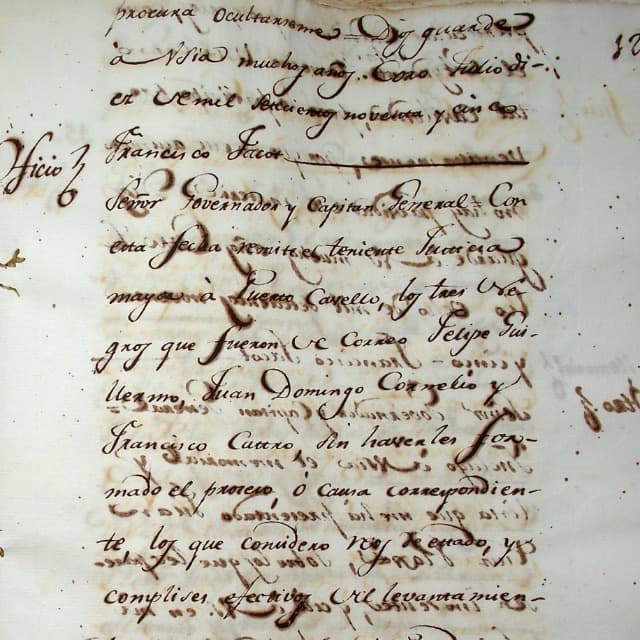 procura ocultarseme = Dios guarde
à Vsia muchos años. Coro Julio di-
ez de mil setecientos noventa y cinco
Francisco Jacot
Oficio
Señor Governador y Capitan General = Con
esta fecha remite el teniente Justicia
mayor à Puerto Cavello, los tres Ne-
gros que fueron de Correo Felipe Gui-
llermo, Juan Domingo Cornelio y
Francisco Castro sin haverles for-
mado el proceso, ò causa correspondien-
te los que considero Rios de estado, y
complises efectivos del levantamien-